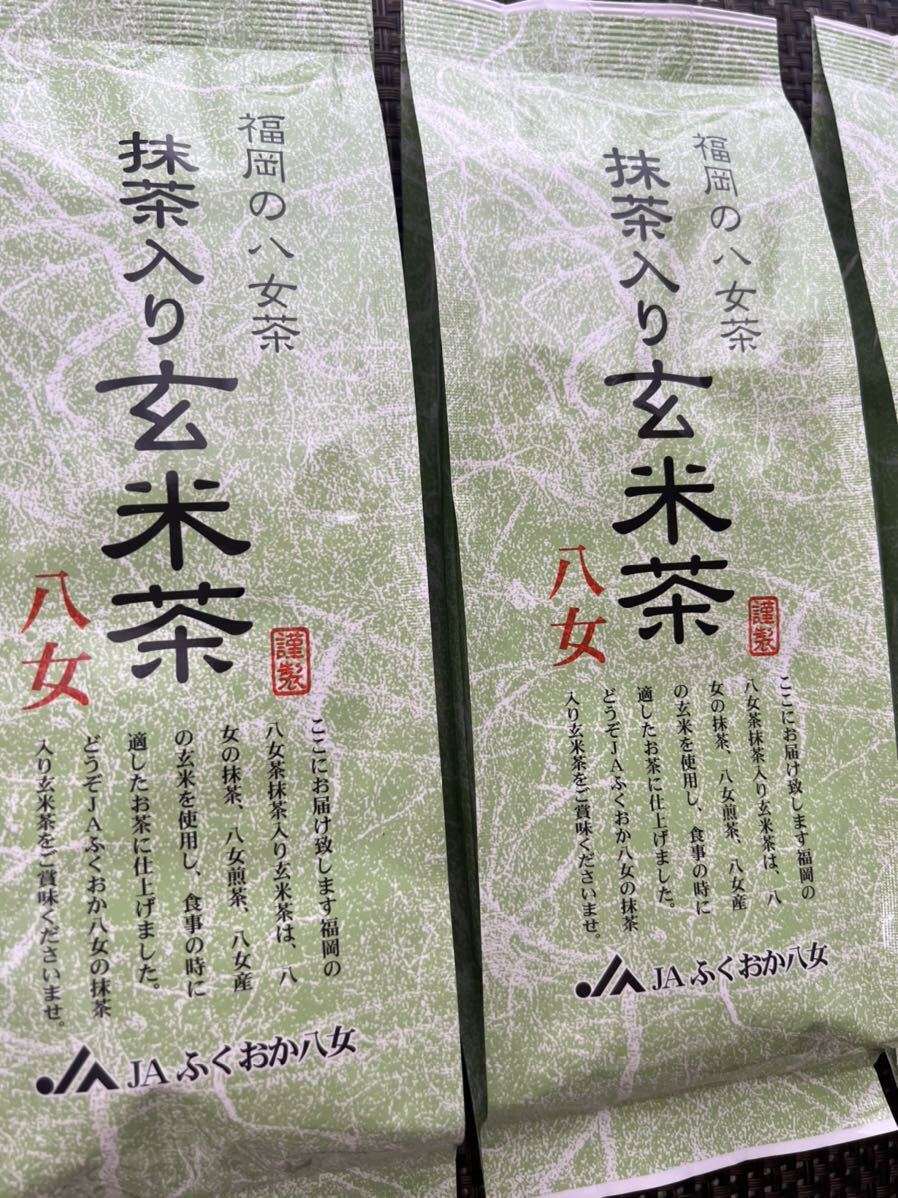 福岡の八女茶
抹茶入り玄米茶
八女
謹製
ここにお届け致します福岡の
八女茶抹茶入り玄米茶は、八
女の抹茶、八女煎茶、八女産
の玄米を使用し、食事の時に
適したお茶に仕上げました。
どうぞJAふくおか八女の抹茶
入り玄米茶をご賞味くださいませ。
JA ふくおか八女
福岡の八女茶
抹茶入り玄米茶
八女
謹製
ここにお届け致します福岡の
八女茶抹茶入り玄米茶は、八
女の抹茶、八女煎茶、八女産
の玄米を使用し、食事の時に
適したお茶に仕上げました。
どうぞJAふくおか八女の抹茶
入り玄米茶をご賞味くださいませ。
JA ふくおか八女